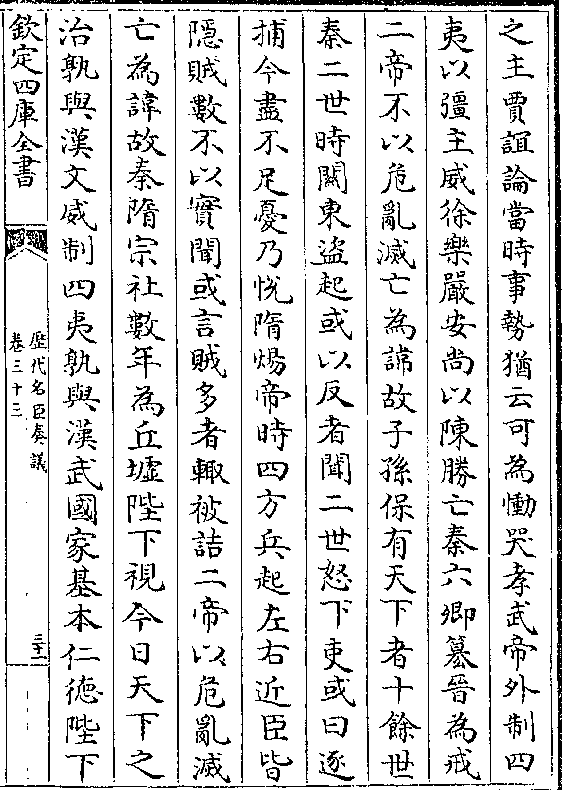 之主賈誼論當時事勢猶云可為慟哭孝武帝外制四
夷以彊主威徐樂嚴安尚以陳勝亡秦六卿篡晉為戒
二帝不以危亂滅亡為諱故子孫保有天下者十餘世
秦二世時關東盜起或以反者聞二世怒下吏或曰逐
捕今盡不足憂乃悅隋煬帝時四方兵起左右近臣皆
隠賊數不以實聞或言賊多者輙被詰二帝以危亂滅
亡為諱故秦隋宗社數年為丘墟陛下視今日天下之
治孰與漢文威制四夷孰與漢武國家基本仁德陛下
欽定四庫全書
歷代名臣奏議
卷三十三
三十一